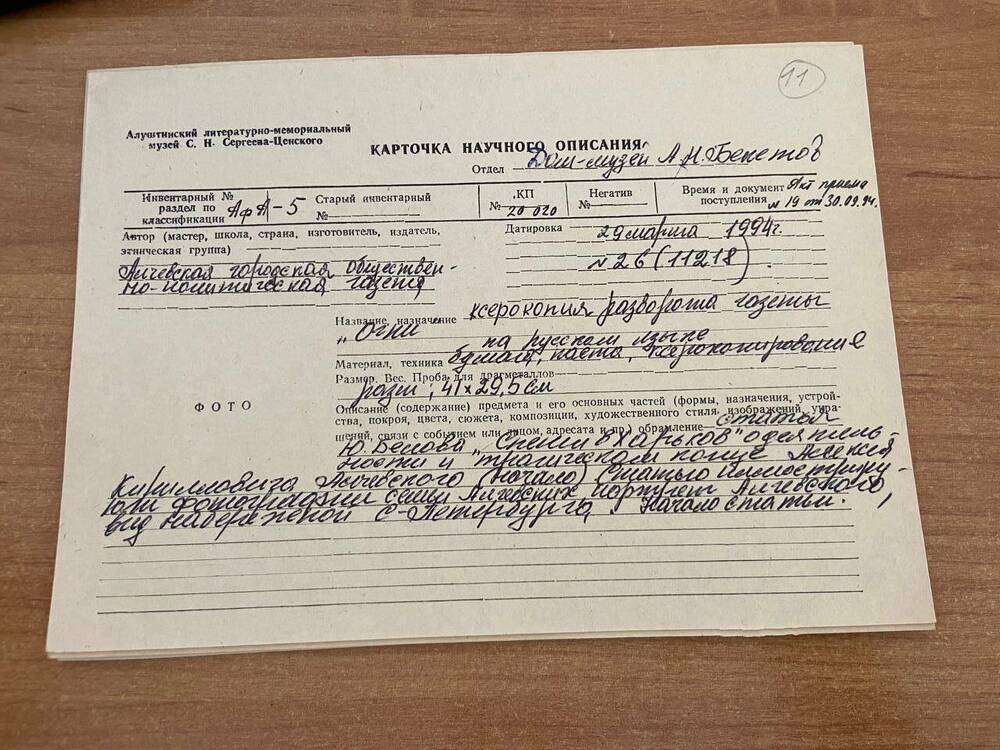 11
Алуштинский литературно-мемориальный
музей С. Н. Сергеева-Ценского
КАРТОЧКА НАУЧНОГО ОПИСАНИЯ
Отдел Дом-музей А.Н. Бекетов
Инвентарный №
раздел по
классификации АфА-5
Старый инвентарный
№
КП
№ 20 020
Негатив
№
Время и документ Акт приема
поступления № 19 от 30.09.94г.
Автор (мастер, школа, страна, изготовитель, издатель,
этническая группа)
Алчевская городская обществен-
но-политическая газета
Датировка 29 марта 1994г.
№ 26 (11218)
Название, назначение ксерокопия разворота газеты
„Огни" на русском языке
Материал, техника бумага, паста, ксерокопирование
Размер. Вес. Проба для драгметаллов
разм; 41×29,5 см
ФОТО
Описание (содержание) предмета и его основных частей (формы, назначения, устрой-
ства, покроя, цвета, сюжета, композиции, художественного стиля изображений, укра-
шений, связи с событием или лицом, адресата и пр.) обрамление статья
Ю. Белова „Спеши в Харьков" о деятель-
ности и трагическом конце Алексея
Кирилловича Алчевского (начало) Статью иллюстриру-
юли фотографии семьи Алчевских портрет Алчевского,
вид набережной С-Петербурга, Начало статьи.